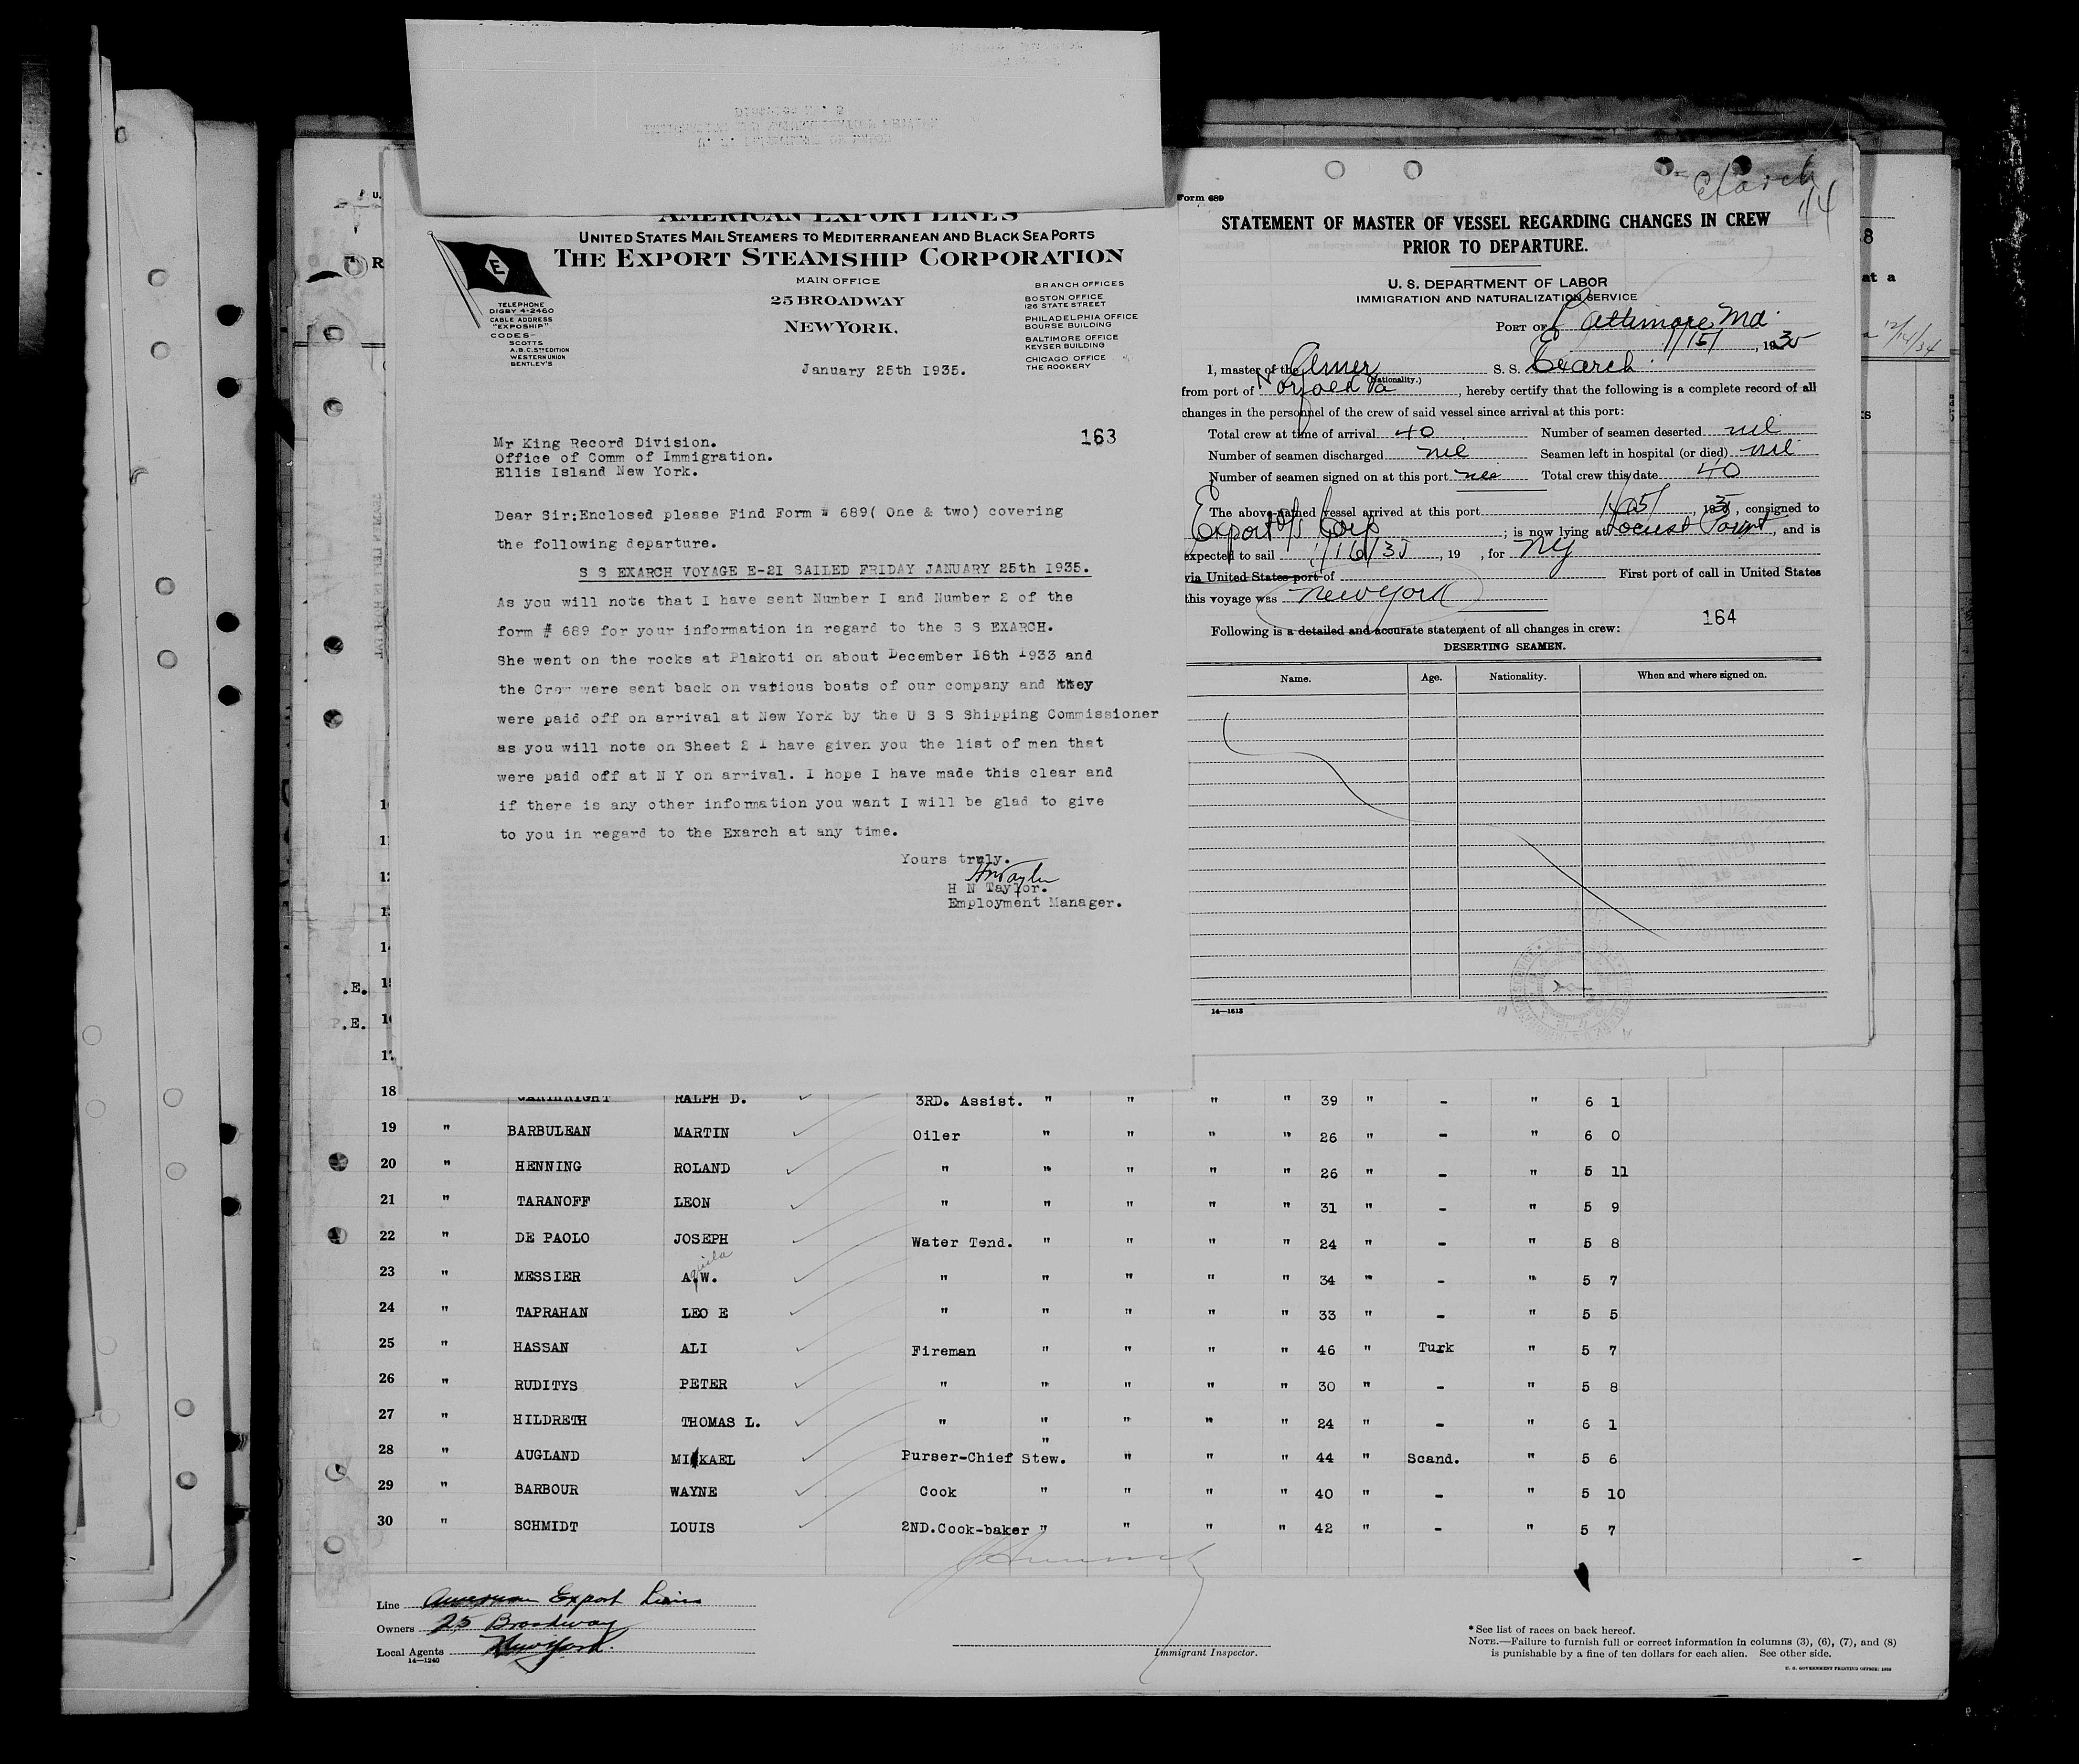 AMERICAN EXPORT LINES
UNITED STATES MAIL STEAMERS TO MEDITERRANEAN AND BLACK SEA PORTS
THE EXPORT STEAMSHIP CORPORATION
E
MAIN OFFICE
25 BROADWAY
NEW YORK,
TELEPHONE
DIGBY 4-2460
CABLE ADDRESS
"EXPOSHIP"
CODES-
SCOTTS
A.B.C. 5TH EDITION
WESTERN UNION
BENTLEY'S
BRANCH OFFICES
BOSTON OFFICE
126 STATE STREET
PHILADELPHIA OFFICE
BOURSE BUILDING
BALTIMORE OFFICE
KEYSER BUILDING
CHICAGO OFFICE
THE ROOKERY
January 25th 1935.
163
Mr King Record Division.
Office of Comm of Immigration.
Ellis Island New York.
Dear Sir;Enclosed please Find Form # 689( One & two) covering
the following departure.
S S EXARCH VOYAGE E-21 SAILED FRIDAY JANUARY 25th 1935.
As you will note that I have sent Number I and Number 2 of the
form # 689 for your information in regard to the S S EXARCH.
She went on the rocks at Plakoti on about December 18th 1933 and
the Crew were sent back on various boats of our company and they
were paid off on arrival at New York by the U S S Shipping Commissioner
as you will note on Sheet 2 I have given you the list of men that
were paid off at N Y on arrival. I hope I have made this clear and
if there is any other information you want I will be glad to give
to you in regard to the Exarch at any time.
Yours truly.
HN Taylor
H N Taylor.
Employment Manager.
Form 689
Exarch
14
STATEMENT OF MASTER OF VESSEL REGARDING CHANGES IN CREW
PRIOR TO DEPARTURE.
U. S. DEPARTMENT OF LABOR
IMMIGRATION AND NATURALIZATION SERVICE
PORT OF Baltimore Md.
1/15/, 1935
I, master of the Amer (Nationality.) S. S. Exarch
from port of Norfolk Va, hereby certify that the following is a complete record of all
changes in the personnel of the crew of said vessel since arrival at this port:
Total crew at time of arrival 40 Number of seamen deserted nil
Number of seamen discharged nil Seamen left in hospital (or died) nil
Number of seamen signed on at this port nil Total crew this date 40
The above-named vessel arrived at this port 1/15/, 1935, consigned to
Export S/S Corp; is now lying at Locust Point, and is
expected to sail 1/16/35, 19 , for NY
via United States port of First port of call in United States
this voyage was New York
164
Following is a detailed and accurate statement of all changes in crew:
DESERTING SEAMEN.
Name. Age. Nationality. When and where signed on.
14—1613
at a
12/14/34
18 CARTHRIGHT RALPH D. 3RD. Assist. " " " " 39 " - " 6 1
19 " BARBULEAN MARTIN Oiler " " " " 26 " - " 6 0
20 " HENNING ROLAND " " " " " 26 " - " 5 11
21 " TARANOFF LEON " " " " " 31 " - " 5 9
22 " DE PAOLO JOSEPH Water Tend. " " " " 24 " - " 5 8
23 " MESSIER A.W. " " " " " 34 " - " 5 7
24 " TAPRAHAN LEO E " " " " " 33 " - " 5 5
25 " HASSAN ALI Fireman " " " " 46 " Turk " 5 7
26 " RUDITYS PETER " " " " " 30 " - " 5 8
27 " HILDRETH THOMAS L. " " " " " 24 " - " 6 1
28 " AUGLAND MIKAEL Purser-Chief Stew. " " " " 44 " Scand. " 5 6
29 " BARBOUR WAYNE Cook " " " " 40 " - " 5 10
30 " SCHMIDT LOUIS 2ND.Cook-baker " " " " 42 " - " 5 7
Line American Export Lines
Owners 25 Broadway
Local Agents New York.
14—1240
Immigrant Inspector.
* See list of races on back hereof.
NOTE.—Failure to furnish full or correct information in columns (3), (6), (7), and (8)
is punishable by a fine of ten dollars for each alien. See other side.